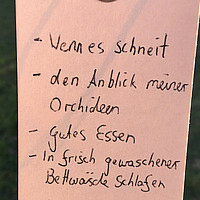 - Wenn es schneit
- den Anblick meiner
Orchideen
- Gutes Essen
- In frisch gewaschener
Bettwäsche Schlafen